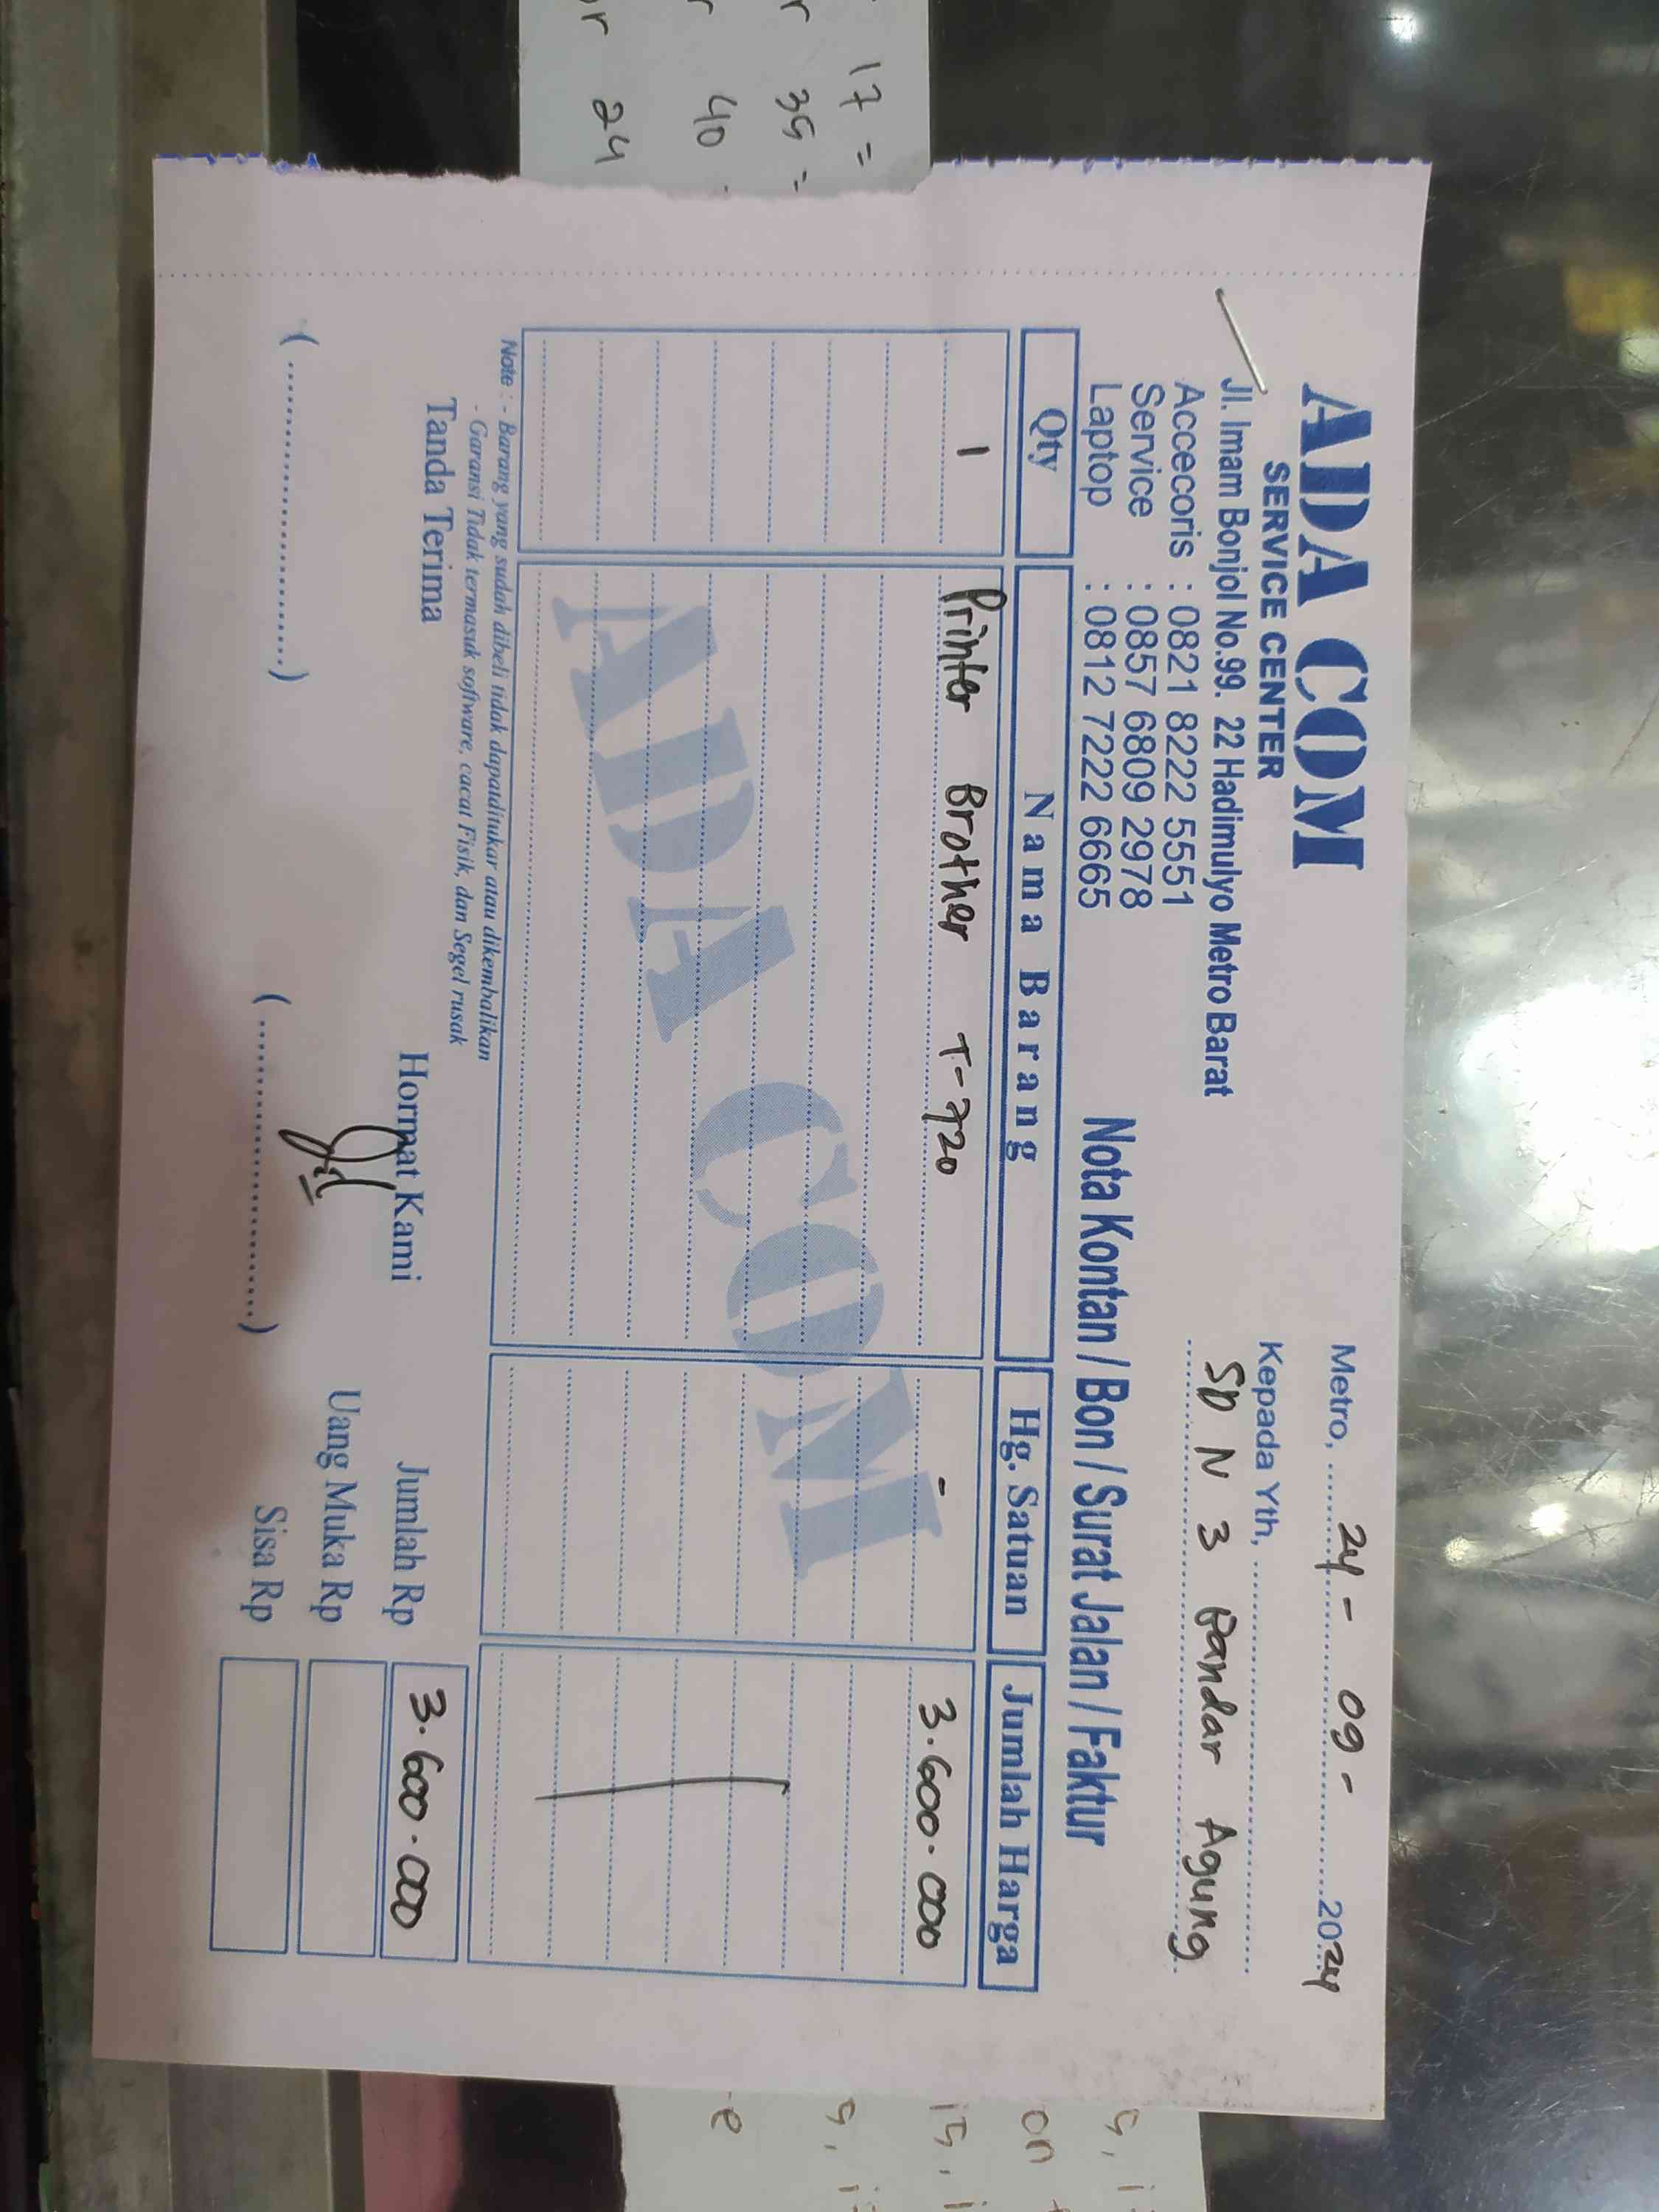 ADA COM
SERVICE CENTER
Jl. Imam Bonjol No.99. 22 Hadimulyo Metro Barat
Accecoris : 0821 8222 5551
Service : 0857 6809 2978
Laptop : 0812 7222 6665
Metro, 24 - 09 - 2024
Kepada Yth,
SD N 3 Bandar Agung
Nota Kontan / Bon / Surat Jalan / Faktur
Qty Nama Barang Hg. Satuan Jumlah Harga
1 Printer Brother T-720 - 3.600.000
ADA COM
Note : - Barang yang sudah dibeli tidak dapatditukar atau dikembalikan
- Garansi Tidak termasuk software, cacat Fisik, dan Segel rusak
Tanda Terima
Hormat Kami
Jumlah Rp 3.600.000
Uang Muka Rp
Sisa Rp
17 =
r 35 -
r 40 -
r 24